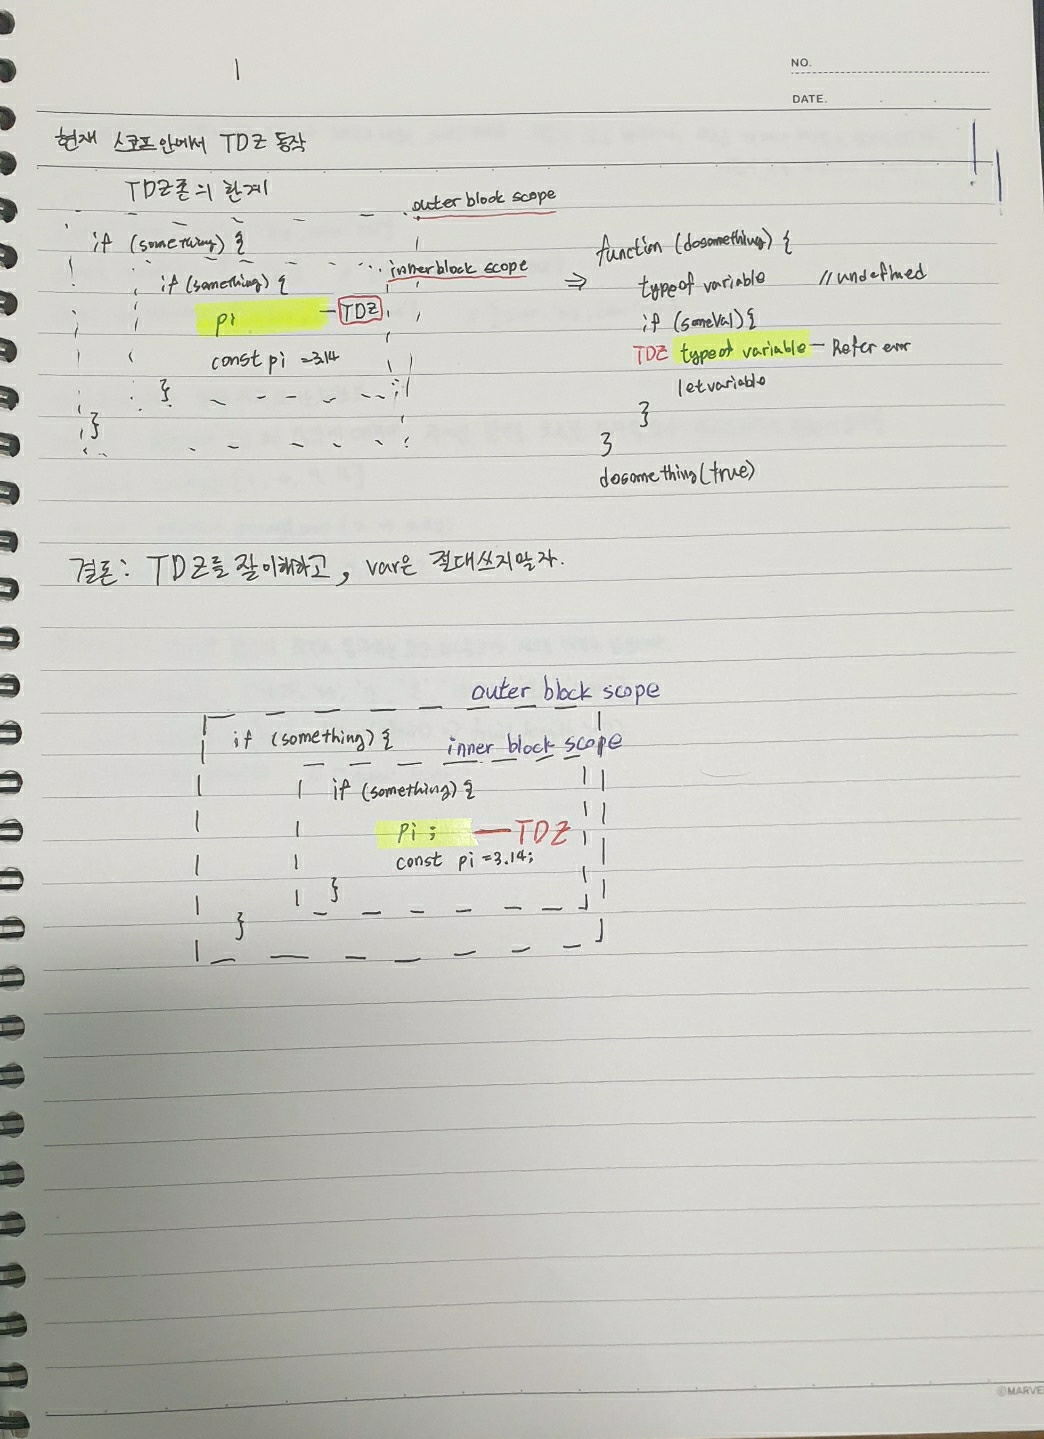 NO.
DATE.
현재 스코프 안에서 TDZ 동작
TDZ존의 한계
outer block scope
if (something) {
inner block scope
if (something) {
pi — TDZ
const pi = 3.14
}
}
⇒
function (dosomething) {
typeof variable //undefined
if (someVal) {
TDZ typeof variable — Refer error
let variable
}
}
dosomething(true)
결론: TDZ를 잘 이해하고, var은 절대쓰지말자.
outer block scope
if (something) {
inner block scope
if (something) {
pi; — TDZ
const pi = 3.14;
}
}